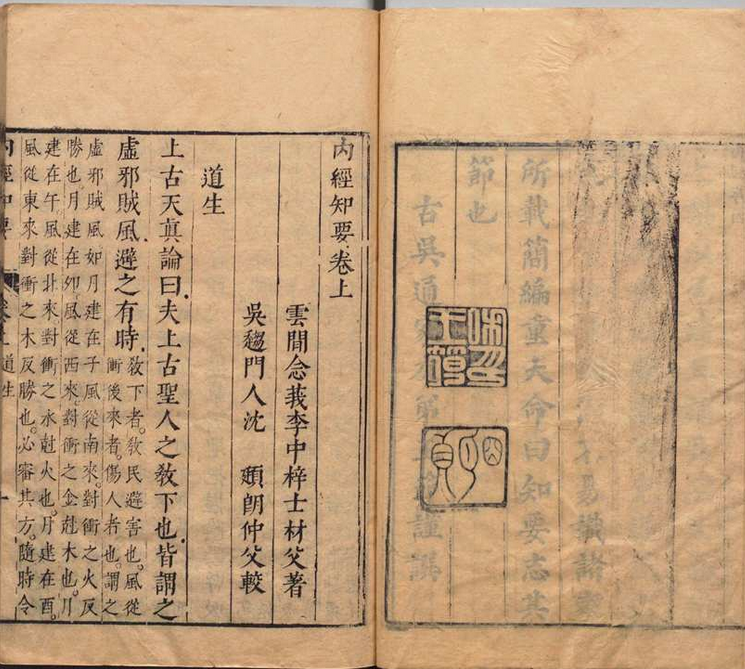 所載簡編重夫命曰知要志其
節也
古吳通家
謹譔
內經知要卷上
雲間念莪李中梓士材父著
吳趨門人沈 頲朗仲父較
道生
上古天真論曰夫上古聖人之敎下也皆謂之
虛邪賊風避之有時
敎下者。敎民避害也。風從
衝後來者。傷人者也。謂之
虛邪賊風如月建在子風從南來。對衝之火反
勝也月建在卯風從西來。對衝之金尅木也。月
建在午風從北來對衝之水尅火也。月建在酉。
風從東來對衝之木反勝也。必審其方。隨時令
內經知要 卷上 道生 一